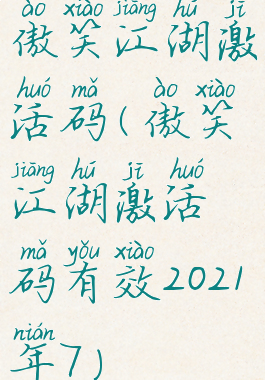 ào xiào jiāng hú jī
傲笑江湖激
huó mǎ ào xiào
活码(傲笑
jiāng hú jī huó
江湖激活
mǎ yǒu xiào
码有效2021
nián
年7)